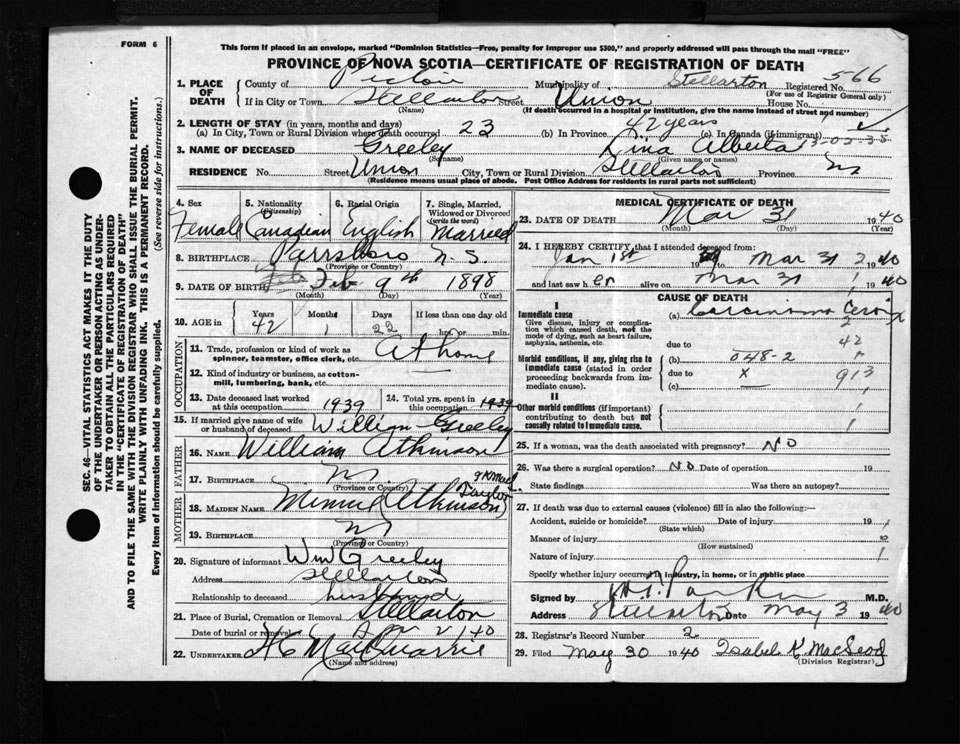 FORM 6
This form if placed in an envelope, marked "Dominion Statistics—Free, penalty for improper use $300," and properly addressed will pass through the mail "FREE"
PROVINCE OF NOVA SCOTIA—CERTIFICATE OF REGISTRATION OF DEATH
SEC. 46—VITAL STATISTICS ACT MAKES IT THE DUTY
OF THE UNDERTAKER OR PERSON ACTING AS UNDER-
TAKER TO OBTAIN ALL THE PARTICULARS REQUIRED
IN THE "CERTIFICATE OF REGISTRATION OF DEATH"
AND TO FILE THE SAME WITH THE DIVISION REGISTRAR WHO SHALL ISSUE THE BURIAL PERMIT.
WRITE PLAINLY WITH UNFADING INK. THIS IS A PERMANENT RECORD.
Every item of information should be carefully supplied. (See reverse side for instructions.)
1. PLACE OF DEATH
County of Pictou Municipality of Stellarton Registered No. 566
(For use of Registrar General only)
If in City or Town Stellarton Street Union House No.
(Name) (If death occurred in a hospital or institution, give the name instead of street and number)
2. LENGTH OF STAY (in years, months and days)
(a) In City, Town or Rural Division where death occurred 23 (b) In Province 42 years (c) In Canada (if immigrant)
3. NAME OF DECEASED Greeley Lina Alberta 13-02-35
(Surname) (Given name or names)
RESIDENCE No. Street Union City, Town or Rural Division Stellarton Province NS
(Residence means usual place of abode. Post Office Address for residents in rural parts not sufficient)
4. Sex Female
5. Nationality (Citizenship) Canadian
6. Racial Origin English
7. Single, Married, Widowed or Divorced (write the word) Married
8. BIRTHPLACE Parrsboro N.S
(Province or Country)
9. DATE OF BIRTH Feb 9th 1898
(Month) (Day) (Year)
10. AGE in Years 42 Months 1 Days 22 If less than one day old hrs. or min.
OCCUPATION
11. Trade, profession or kind of work as spinner, teamster, office clerk, etc. At home
12. Kind of industry or business, as cotton-mill, lumbering, bank, etc.
13. Date deceased last worked at this occupation 1939
14. Total yrs. spent in this occupation 1939
15. If married give name of wife or husband of deceased William Greeley
FATHER
16. NAME William Atkinson
17. BIRTHPLACE NS
(Province or Country)
MOTHER
18. MAIDEN NAME Minnie (Atkinson) Taylor
19. BIRTHPLACE NS
(Province or Country)
20. Signature of informant Wm Greeley
Address Stellarton
Relationship to deceased husband
21. Place of Burial, Cremation or Removal Stellarton
Date of burial or removal Apr 2/40
22. UNDERTAKER H C MacQuarrie
(Name and address)
MEDICAL CERTIFICATE OF DEATH
23. DATE OF DEATH Mar 31 1940
(Month) (Day) (Year)
24. I HEREBY CERTIFY, that I attended deceased from:
Jan 1st 19 Mar 31 1940
and last saw her alive on Mar 31 1940
CAUSE OF DEATH
I
Immediate cause
Give disease, injury or complication which caused death, not the mode of dying, such as heart failure, asphyxia, asthenia, etc.
(a) Carcinoma Cervix
due to 42
Morbid conditions, if any, giving rise to immediate cause (stated in order proceeding backwards from immediate cause).
(b) 048-2
due to x 913
(c)
II
Other morbid conditions (if important) contributing to death but not causally related to immediate cause.
25. If a woman, was the death associated with pregnancy? NO
26. Was there a surgical operation? NO Date of operation 19
State findings Was there an autopsy?
27. If death was due to external causes (violence) fill in also the following:—
Accident, suicide or homicide? Date of injury 19
(State which)
Manner of injury
(How sustained)
Nature of injury
Specify whether injury occurred in industry, in home, or in public place
Signed by M.D.
Address Stellarton Date May 3 1940
28. Registrar's Record Number 2
29. Filed May 30 1940 Isabel K. MacLeod
(Division Registrar)